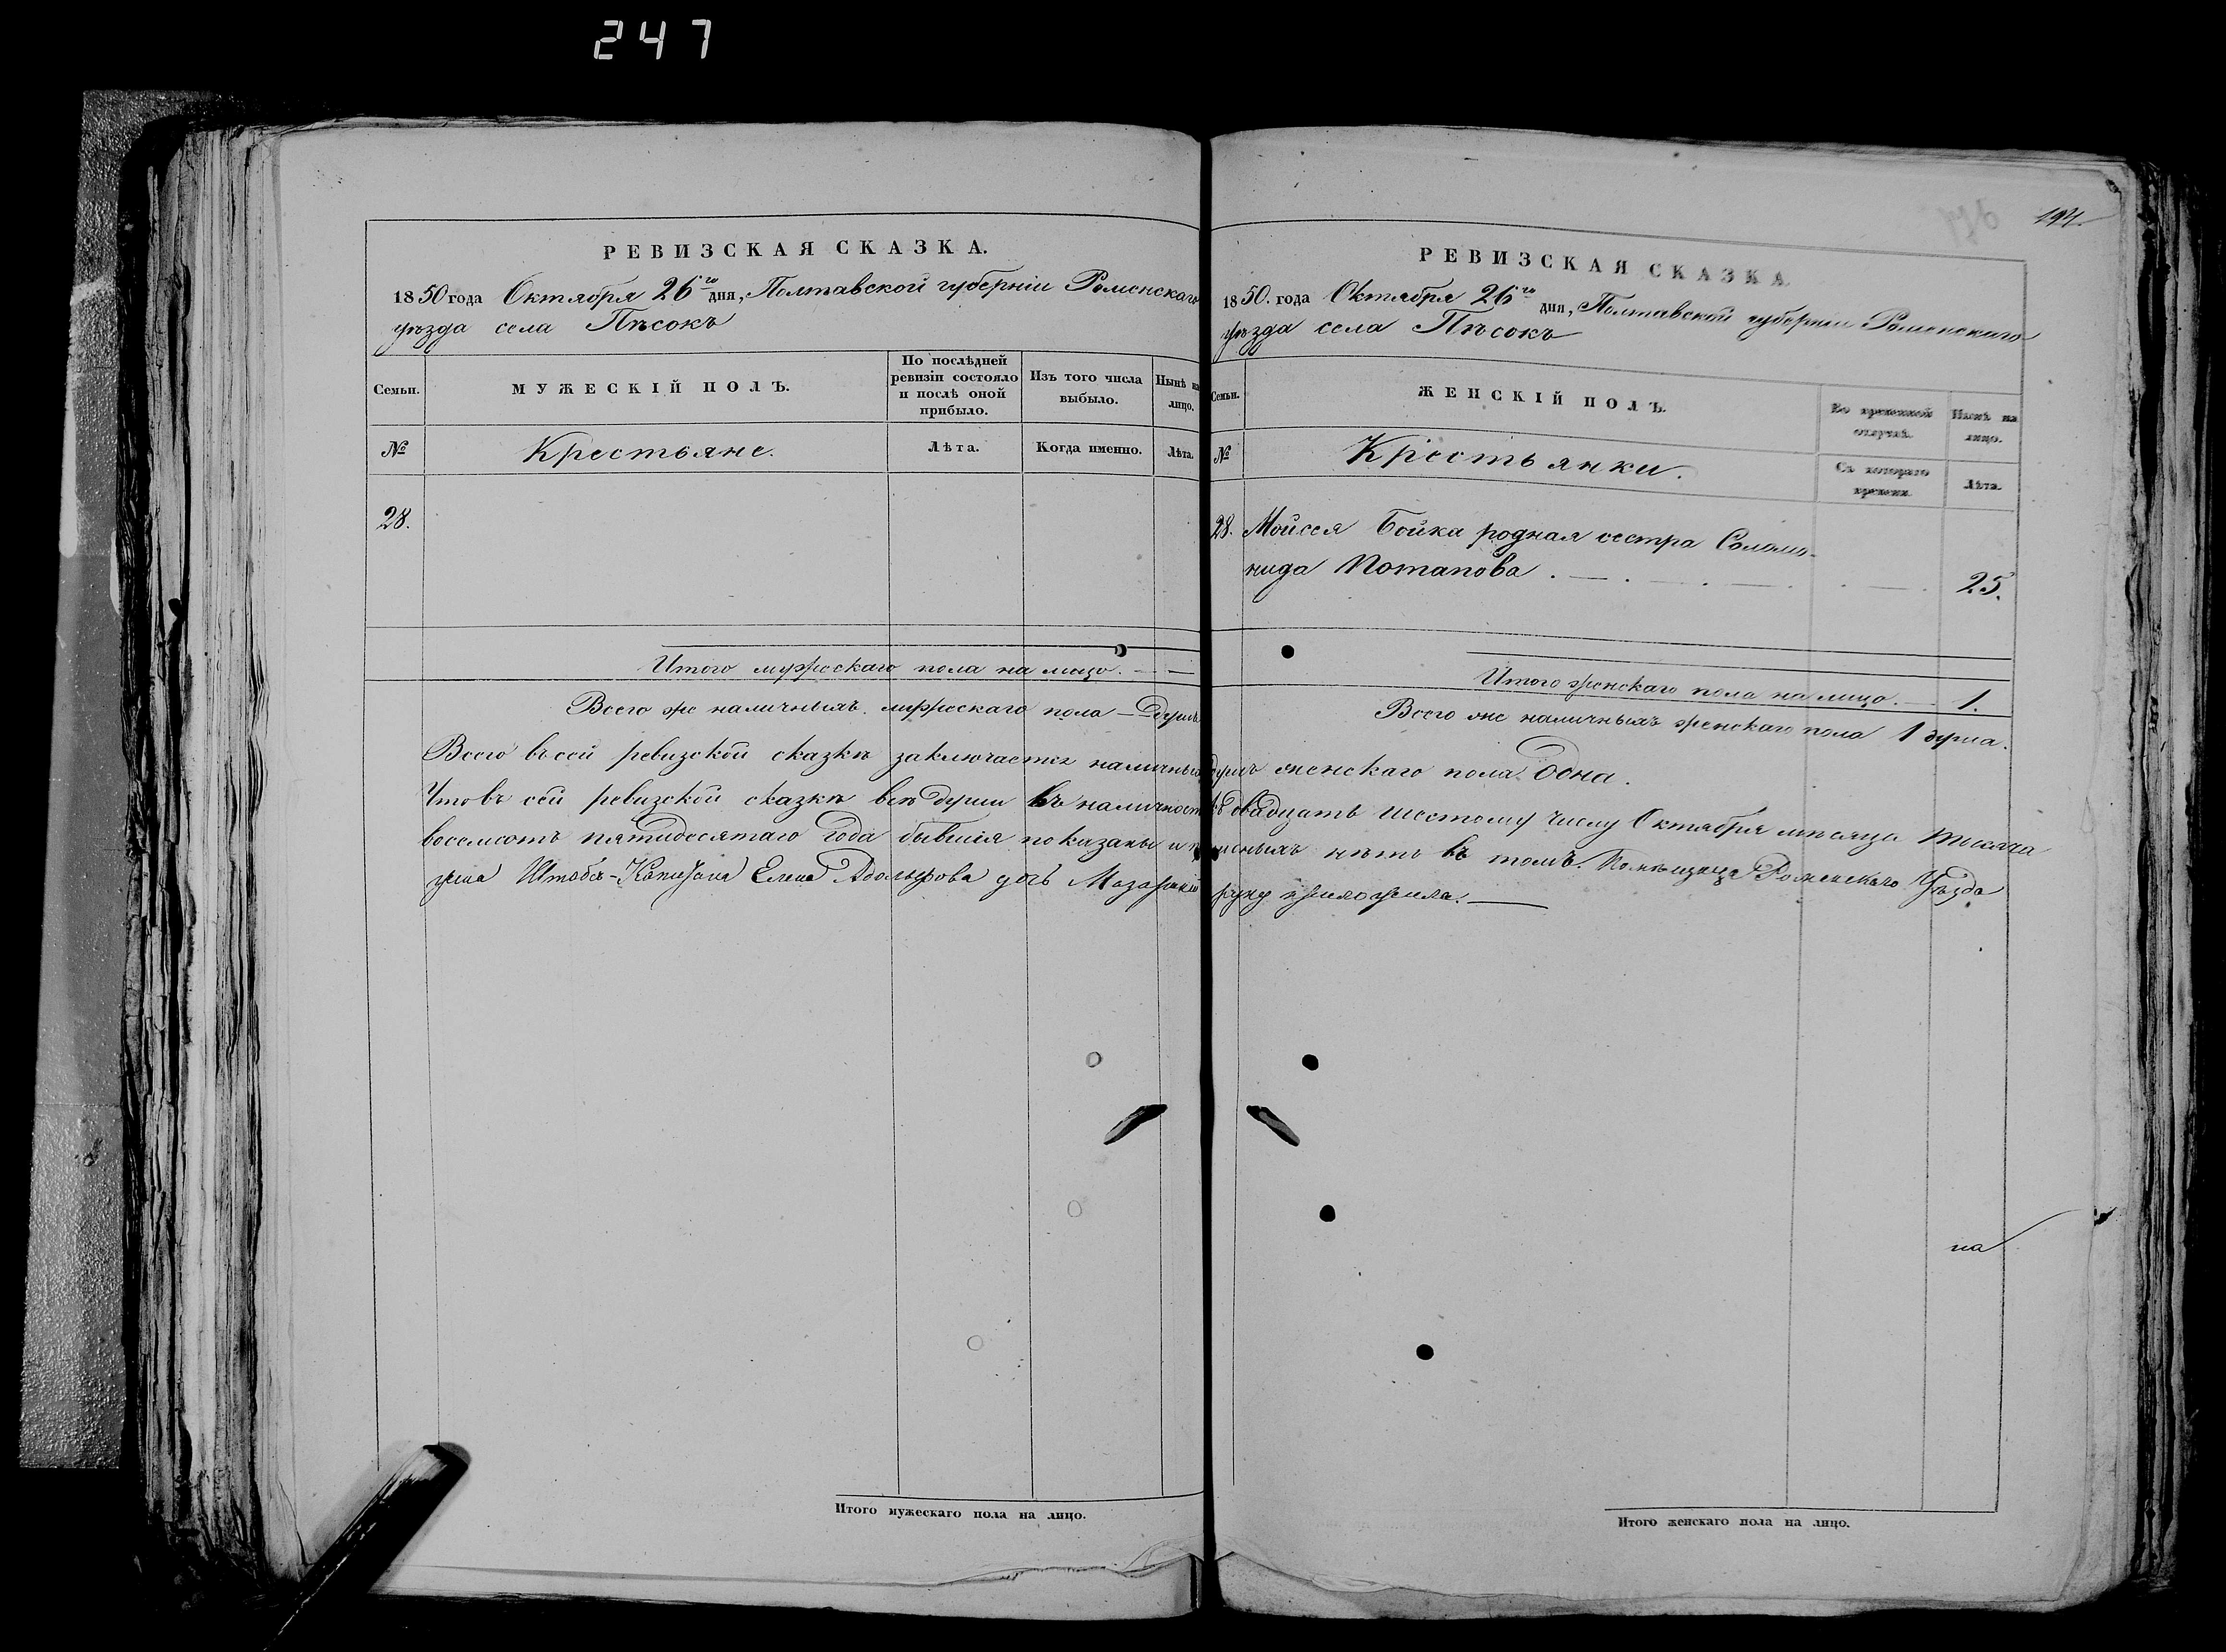 247
РЕВИЗСКАЯ СКАЗКА.
1850 года Октября 26го дня, Полтавской губерніи Роменскаго
уѣзда села Пѣсокъ
Семьи.
МУЖЕСКІЙ ПОЛЪ.
По послѣдней
ревизіи состояло
и послѣ оной
прибыло.
Изъ того числа
выбыло.
Нынѣ на
лицо.
№
Крестьяне.
Лѣта.
Когда именно.
Лѣта.
28.
Итого мужескаго пола на лицо. —
Всего же наличныхъ мужескаго пола — душъ
РЕВИЗСКАЯ СКАЗКА
1850. года Октября 26го дня, Полтавской губерніи Роменскаго
уѣзда села Пѣсокъ
Семьи.
ЖЕНСКІЙ ПОЛЪ.
Во временной
отлучкѣ.
Нынѣ на
лицо.
№
Крестьянки.
Съ котораго
времени.
Лѣта.
28. Мойсея Бойка родная сестра Соломо-
нида Потапова 25.
Итого женскаго пола на лицо. — 1.
Всего же наличныхъ женскаго пола 1 душа.
Всего въ сей ревизской сказкѣ заключается наличныхъ душъ женскаго пола одна.
Что въ сей ревизской сказкѣ всѣ души въ наличности къ двадцать шестому числу Октября мѣсяца тысяча
восемсотъ пятидесятаго года бывшія показаны и прописныхъ нѣтъ въ томъ. Помѣщица Роменскаго Уѣзда
Штабсъ-Капитана Елена Адольфова дочь руку приложила. —
на
Итого мужескаго пола на лицо.
Итого женскаго пола на лицо.